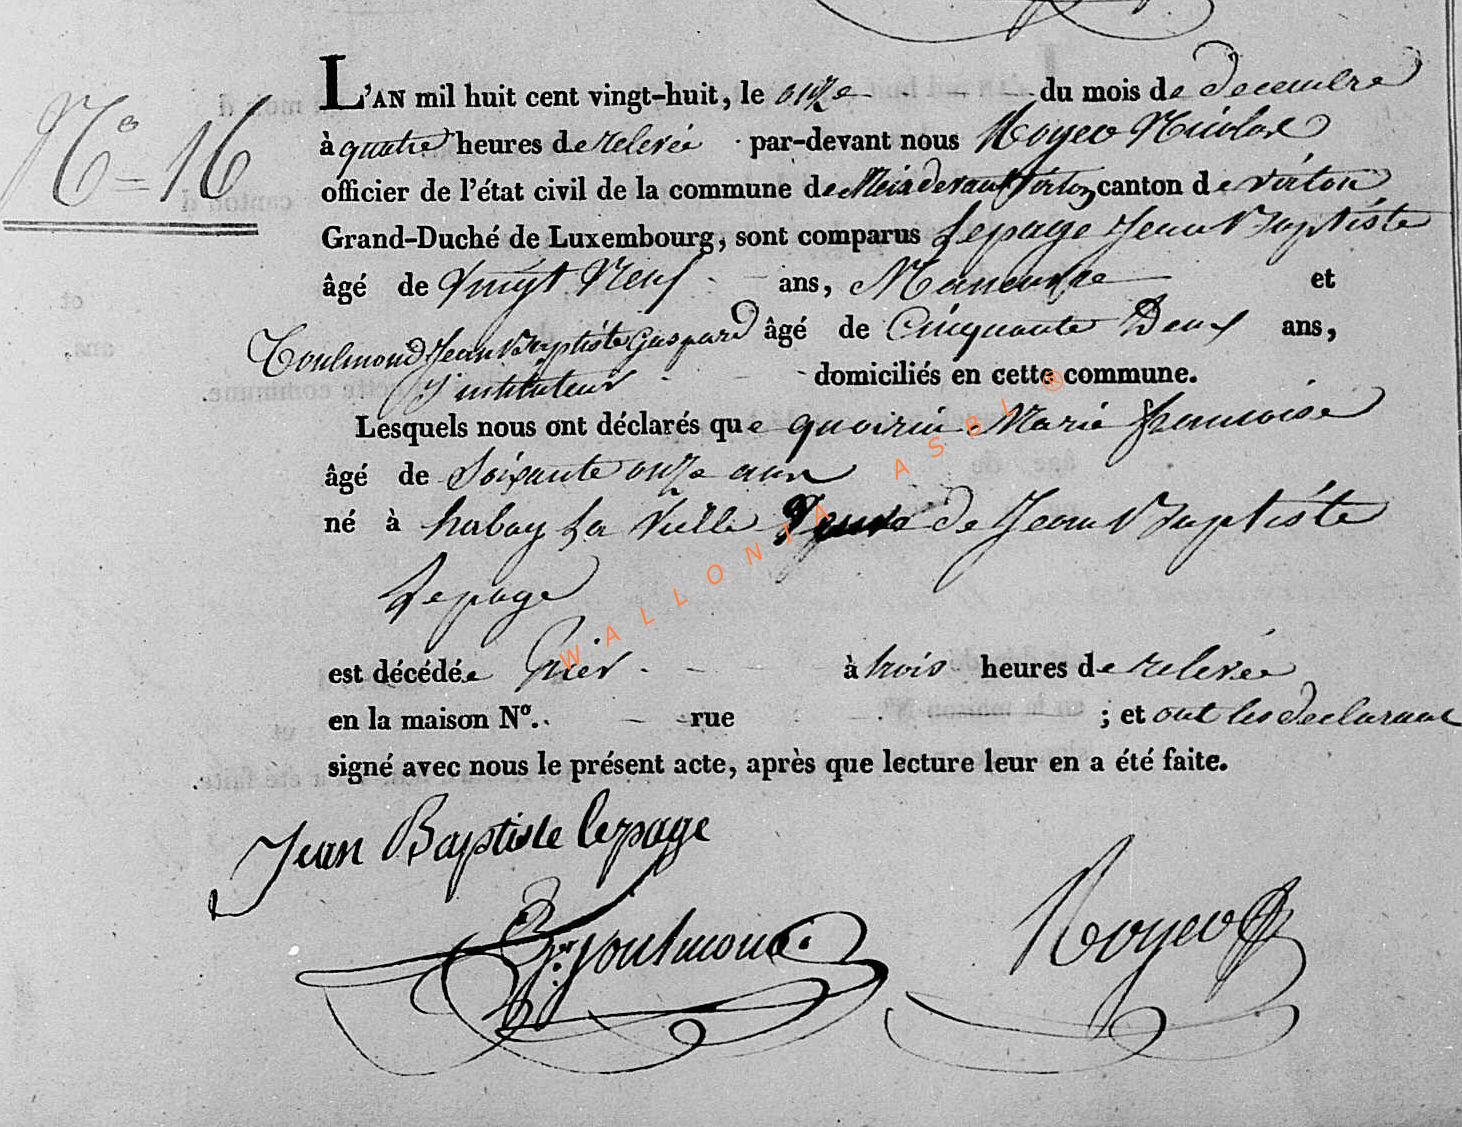 N° 16
L'AN mil huit cent vingt-huit, le onze du mois de decembre
à quatre heures de relevée par-devant nous Noyer Nicolas
officier de l'état civil de la commune de Meix devant Virton canton de virton
Grand-Duché de Luxembourg, sont comparus Lepage Jean Baptiste
âgé de Vingt Neuf ans, Maneuvre et
Toulmond Jean Baptiste Gaspard âgé de Cinquante Deux ans,
instituteur domiciliés en cette commune.
Lesquels nous ont déclarés que quoirin Marie francoise
âgé de Soixante onze ans
né à habay La Vielle Veuve de Jean Baptiste
Lepage
est décédée hier à trois heures de relevée
en la maison N°. rue ; et ont les declarant
signé avec nous le présent acte, après que lecture leur en a été faite.
Jean Baptiste lepage
Toulmond
Noyer
WALLONIA ASBL ®